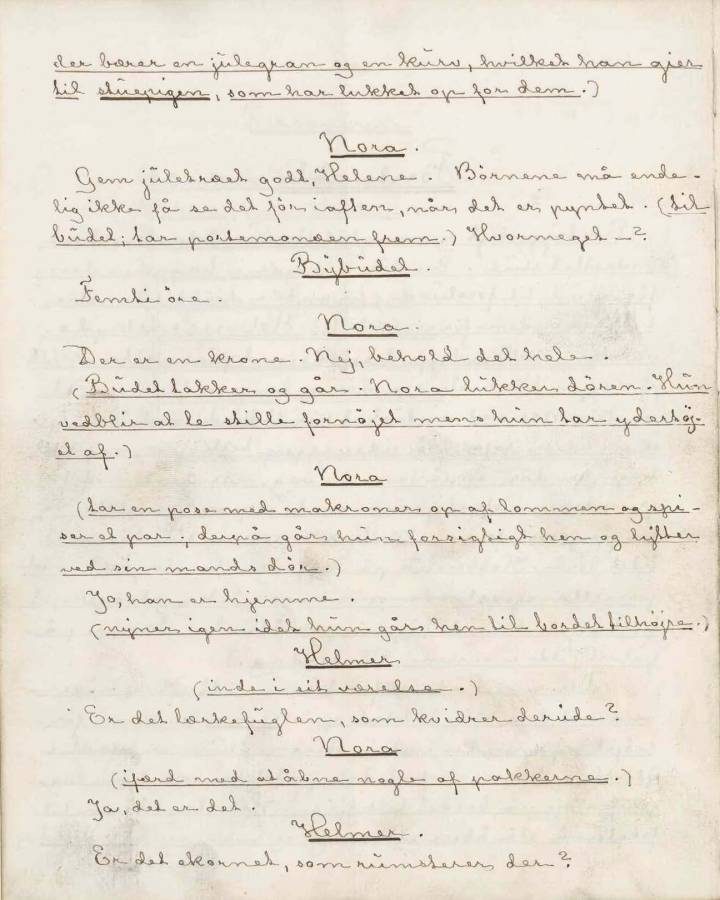 der bærer en julegran og en kurv, hvilket han gier
til stuepigen, som har lukket op for dem.)
Nora.
Gem juletræet godt, Helene. Börnene må ende-
lig ikke få se det för iaften, når det er pyntet. (til
budet; tar portemonæen frem.) Hvormeget —?
Bybudet.
Femti öre.
Nora.
Der er en krone. Nej, behold det hele.
(Budet takker og går. Nora lukker dören. Hun
vedblir at le stille fornöjet mens hun tar ydertöj-
et af.)
Nora
(tar en pose med makroner op af lommen og spi-
ser et par; derpå går hun forsigtigt hen og lytter
ved sin mands dör.)
Jo, han er hjemme.
(nynner igen idet hun går hen til bordet tilhöjre.)
Helmer
(inde i sit værelse.)
Er det lærkefuglen, som kvidrer derude?
Nora
(ifærd med at åbne nogle af pakkerne.)
Ja, det er det.
Helmer.
Er det ekornet, som rumsterer der?